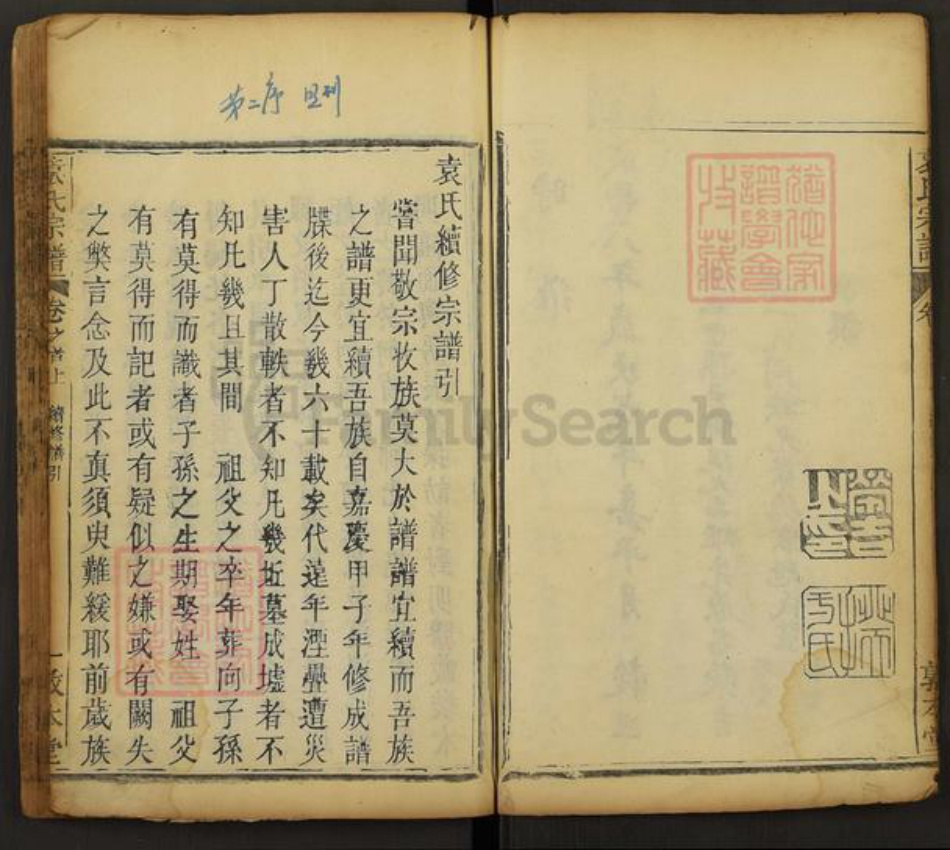 第二序
袁氏宗譜
猶他家
譜學會
收藏
敦本堂
袁氏續修宗譜引
嘗聞敬宗收族莫大於譜譜宜續而吾族
之譜更宜續吾族自嘉慶甲子年修成譜
牒後迄今幾六十載矣代遠年湮疊遭災
害人丁散軼者不知凡幾坵墓成墟者不
知凡幾且其間 祖父之卒年葬向子孫
有莫得而識者子孫之生期娶姓 祖父
有莫得而記者或有疑似之嫌或有闕失
之獘言念及此不真須臾難緩耶前歲族
袁氏宗譜
卷之首上
續修譜引
一
敦本堂
FamilySearch